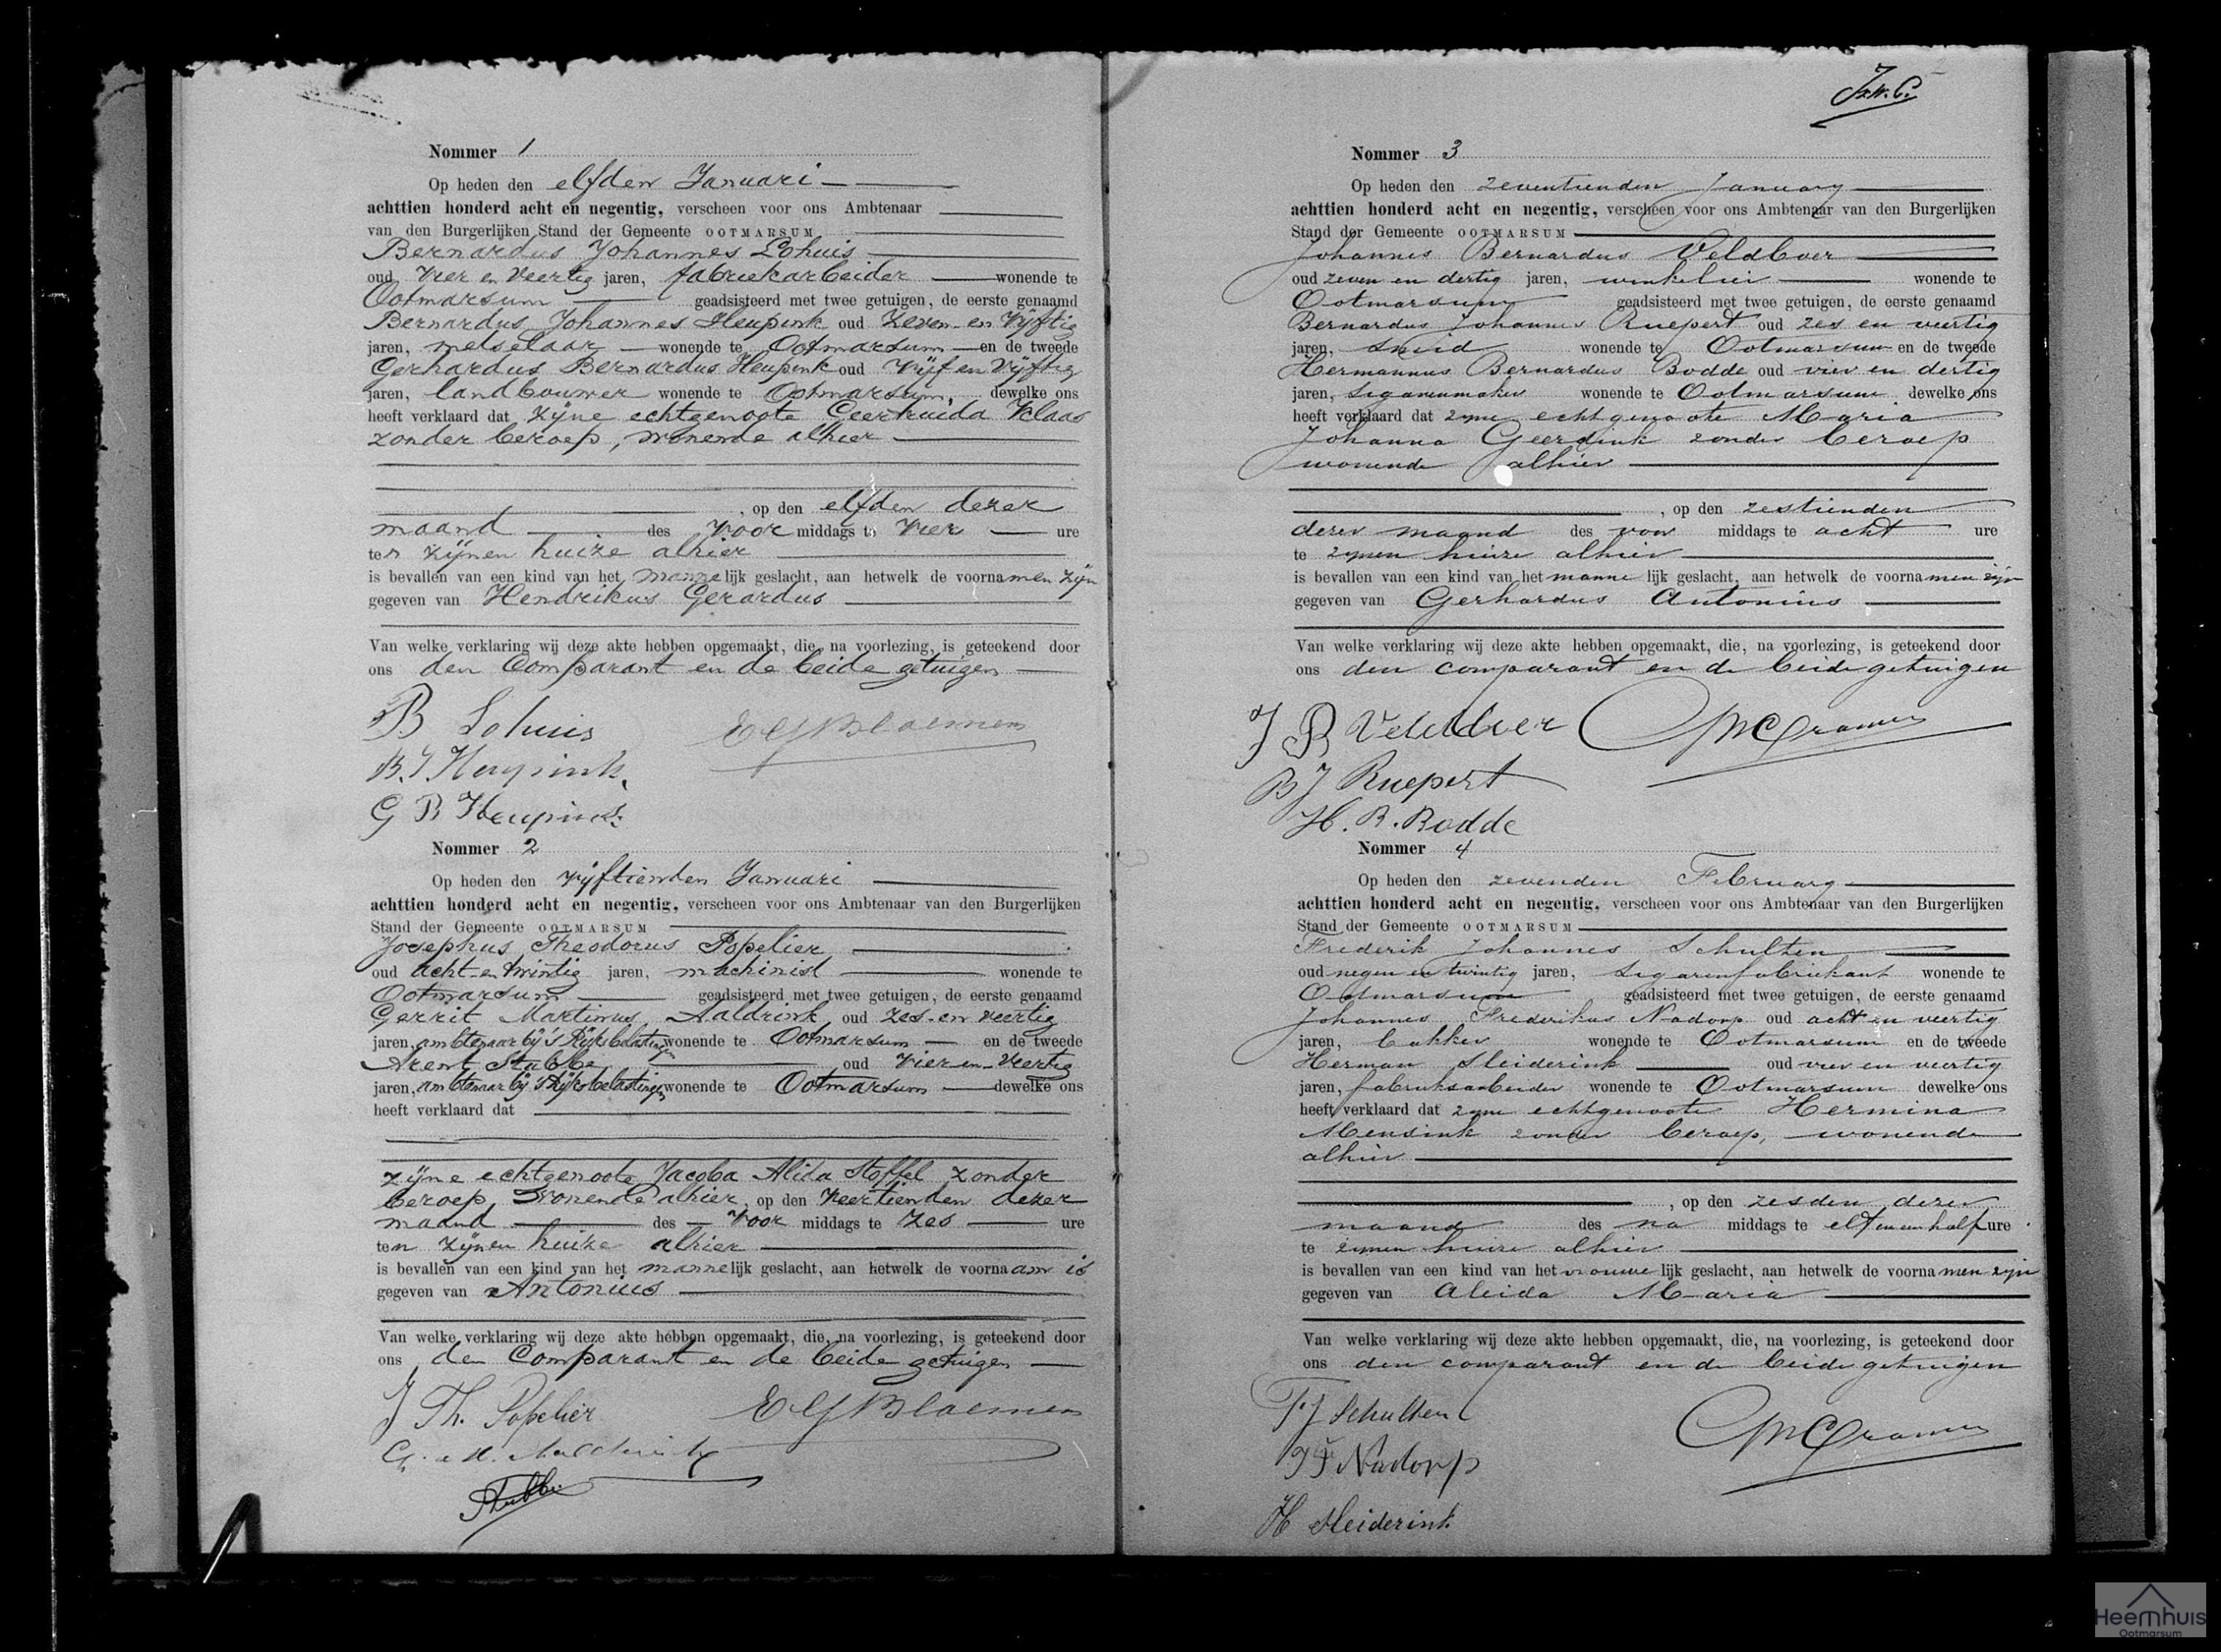 Nommer 1
Op heden den elfden Januari
achttien honderd acht en negentig, verscheen voor ons Ambtenaar
van den Burgerlijken Stand der Gemeente OOTMARSUM
Bernardus Johannes Lohuis
oud Vier en Veertig jaren, fabriekarbeider wonende te
Ootmarsum geadsisteerd met twee getuigen, de eerste genaamd
Bernardus Johannes Heupink oud Zeven en Vijftig
jaren, metselaar wonende te Ootmarsum en de tweede
Gerhardus Bernardus Heupink oud Vijf en Vijftig
jaren, landbouwer wonende te Ootmarsum, dewelke ons
heeft verklaard dat zijne echtgenoote Geertruida Klaas
zonder beroep, wonende alhier
, op den elfden dezer
maand des Voor middags te Vier ure
ten zijnen huize alhier
is bevallen van een kind van het mannelijk geslacht, aan hetwelk de voornamen zijn
gegeven van Hendrikus Gerardus
Van welke verklaring wij deze akte hebben opgemaakt, die, na voorlezing, is geteekend door
ons den Comparant en de beide getuigen
B Lohuis
B. J Heupink.
G B Heupink.
Nommer 2
Op heden den vijftienden Januari
achttien honderd acht en negentig, verscheen voor ons Ambtenaar van den Burgerlijken
Stand der Gemeente OOTMARSUM
Josephus Theodorus Popelier
oud acht en twintig jaren, machinist wonende te
Ootmarsum geadsisteerd met twee getuigen, de eerste genaamd
Gerrit Martinus Aaldrink oud zes en veertig
jaren, ambtenaar bij 's Rijks belastingen wonende te Ootmarsum en de tweede
Arent Stubbe oud Vier en Veertig
jaren, ambtenaar bij 's Rijks belastingen wonende te Ootmarsum dewelke ons
heeft verklaard dat
zijne echtgenoote Jacoba Alida Stoffel zonder
beroep, wonende alhier, op den Veertienden dezer
maand des Voor middags te Zes ure
ten zijnen huize alhier
is bevallen van een kind van het mannelijk geslacht, aan hetwelk de voornaam is
gegeven van Antonius
Van welke verklaring wij deze akte hebben opgemaakt, die, na voorlezing, is geteekend door
ons den Comparant en de beide getuigen
J Th. Popelier
Stubbe
Nommer 3
Op heden den zeventienden January
achttien honderd acht en negentig, verscheen voor ons Ambtenaar van den Burgerlijken
Stand der Gemeente OOTMARSUM
Johannes Bernardus Veldboer
oud zeven en dertig jaren, winkelier wonende te
Ootmarsum geadsisteerd met twee getuigen, de eerste genaamd
Bernardus Johannes Ruepert oud zes en veertig
jaren, smid wonende te Ootmarsum en de tweede
Hermannus Bernardus Bodde oud vier en dertig
jaren, sigarenmaker wonende te Ootmarsum dewelke ons
heeft verklaard dat zijne echtgenoote Maria
Johanna Geerdink zonder beroep
wonende alhier
, op den zestienden
dezer maand des voor middags te acht ure
te zijnen huize alhier
is bevallen van een kind van het mannelijk geslacht, aan hetwelk de voornamen zijn
gegeven van Gerhardus Antonius
Van welke verklaring wij deze akte hebben opgemaakt, die, na voorlezing, is geteekend door
ons den comparant en de beide getuigen
J B Veldboer
B J Ruepert
H. B. Bodde
Nommer 4
Op heden den zevenden February
achttien honderd acht en negentig, verscheen voor ons Ambtenaar van den Burgerlijken
Stand der Gemeente OOTMARSUM
Frederik Johannes Schulten
oud negen en twintig jaren, sigarenfabriekant wonende te
Ootmarsum geadsisteerd met twee getuigen, de eerste genaamd
Johannes Frederikus Nadorp oud acht en veertig
jaren, bakker wonende te Ootmarsum en de tweede
Herman Sleiderink oud vier en veertig
jaren, fabrieksarbeider wonende te Ootmarsum dewelke ons
heeft verklaard dat zijne echtgenoote Hermina
Mensink zonder beroep, wonende
alhier
, op den zesden dezer
maand des na middags te elf en een half ure
te zijnen huize alhier
is bevallen van een kind van het vrouwelijk geslacht, aan hetwelk de voornamen zijn
gegeven van Aleida Maria
Van welke verklaring wij deze akte hebben opgemaakt, die, na voorlezing, is geteekend door
ons den comparant en de beide getuigen
F J Schulten
J F Nadorp
H Sleiderink
Heemhuis
Ootmarsum